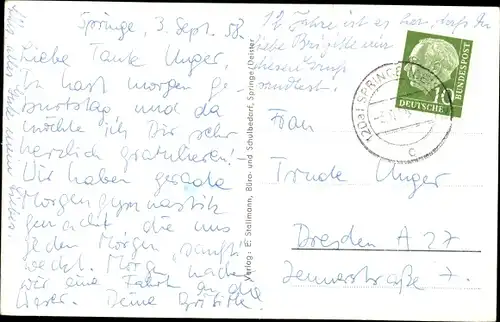 Springe, 3. Sept. 58.
Liebe Tante Unger,
Du hast morgen Ge-
burtstag und da
möchte ich Dir sehr
herzlich gratulieren!
Wir haben gerade
Morgengymnastik
gemacht die uns
jeden Morgen "sanft"
weckt. Morg. machen
wir eine Fahrt an die
Weser. Deine Brigitte.
12 Jahre ist es her, daß
liebe Brigitte
diesen Gruß
sandtest.
Verlag: E. Stallmann, Büro- und Schulbedarf, Springe (Deister)
DEUTSCHE BUNDESPOST
10
(20a) SPRINGE
c
Frau
Trude Unger
Dresden A 27
Jennerstraße 7.